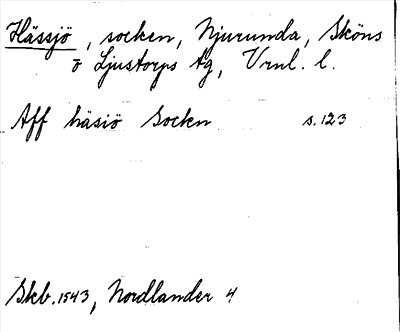 Hässjö, socken, Njurunda, Sköns
o Ljustorps tg, Vrnl. l.
Aff häsiö Sockn s. 123
Skb. 1543, Nordlander 4